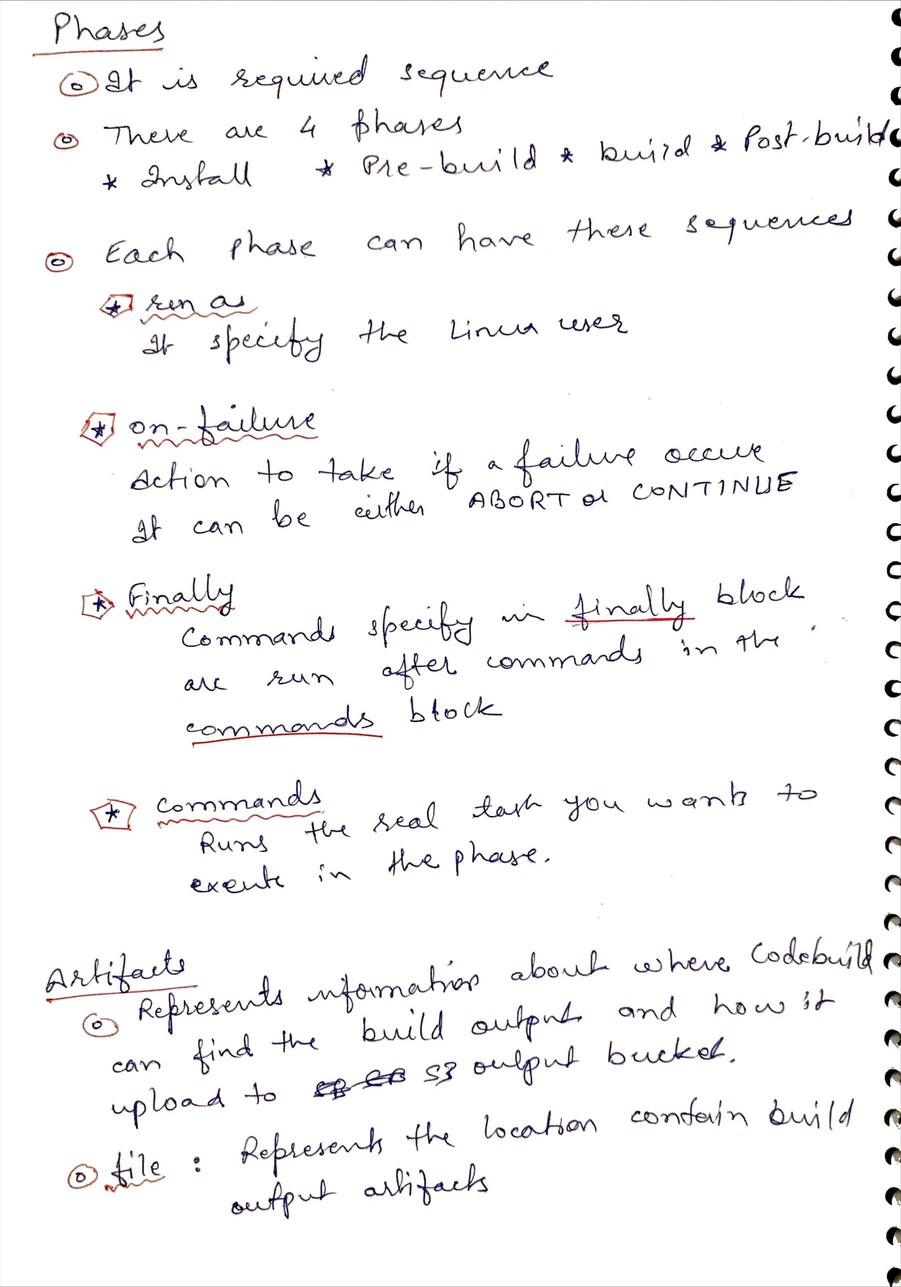 Phases
It is required sequence
There are 4 phases
* Install * Pre-build * build * Post-build
Each phase can have these sequences
* run as
It specify the Linux user
* on-failure
Action to take if a failure occure
It can be either ABORT or CONTINUE
* Finally
Commands specify in finally block
are run after commands in the
commands block
* Commands
Runs the real task you wants to
exeute in the phase.
Artifacts
Represents information about where Codebuild
can find the build output and how it
upload to S3 output bucket.
file : Represents the location contain build
output artifacts